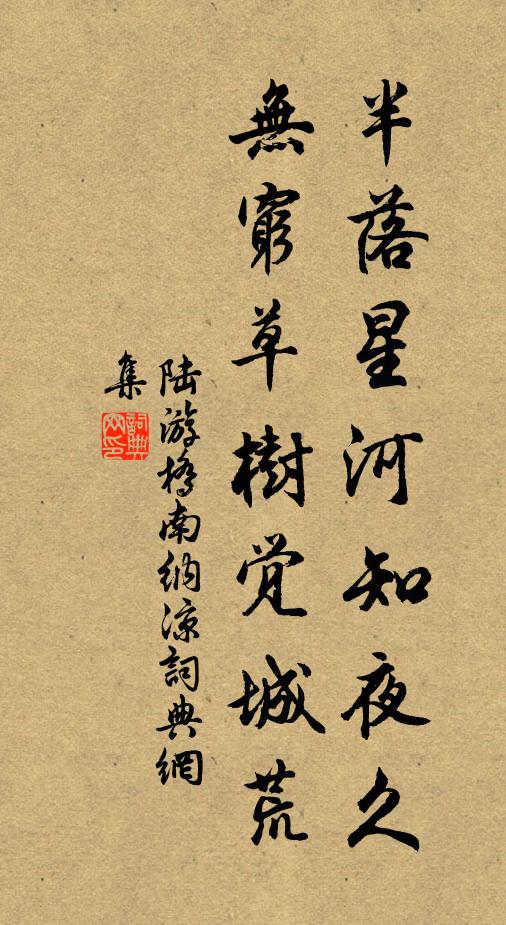 半落星河知夜久
無窮草樹覺城荒
陆游橋南納涼詞典網
集
詞典網印